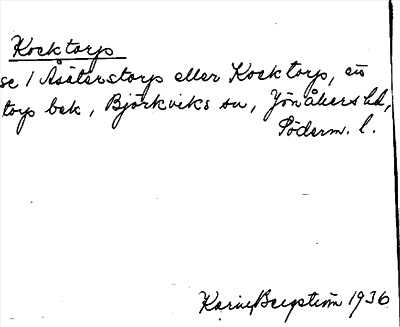 Kocktorp
se 1 Åsätterstorp eller Kocktorp, en
torp bek, Björkviks sn, Jönåkers hd,
Söderm. l.
Karin Bergström 1936